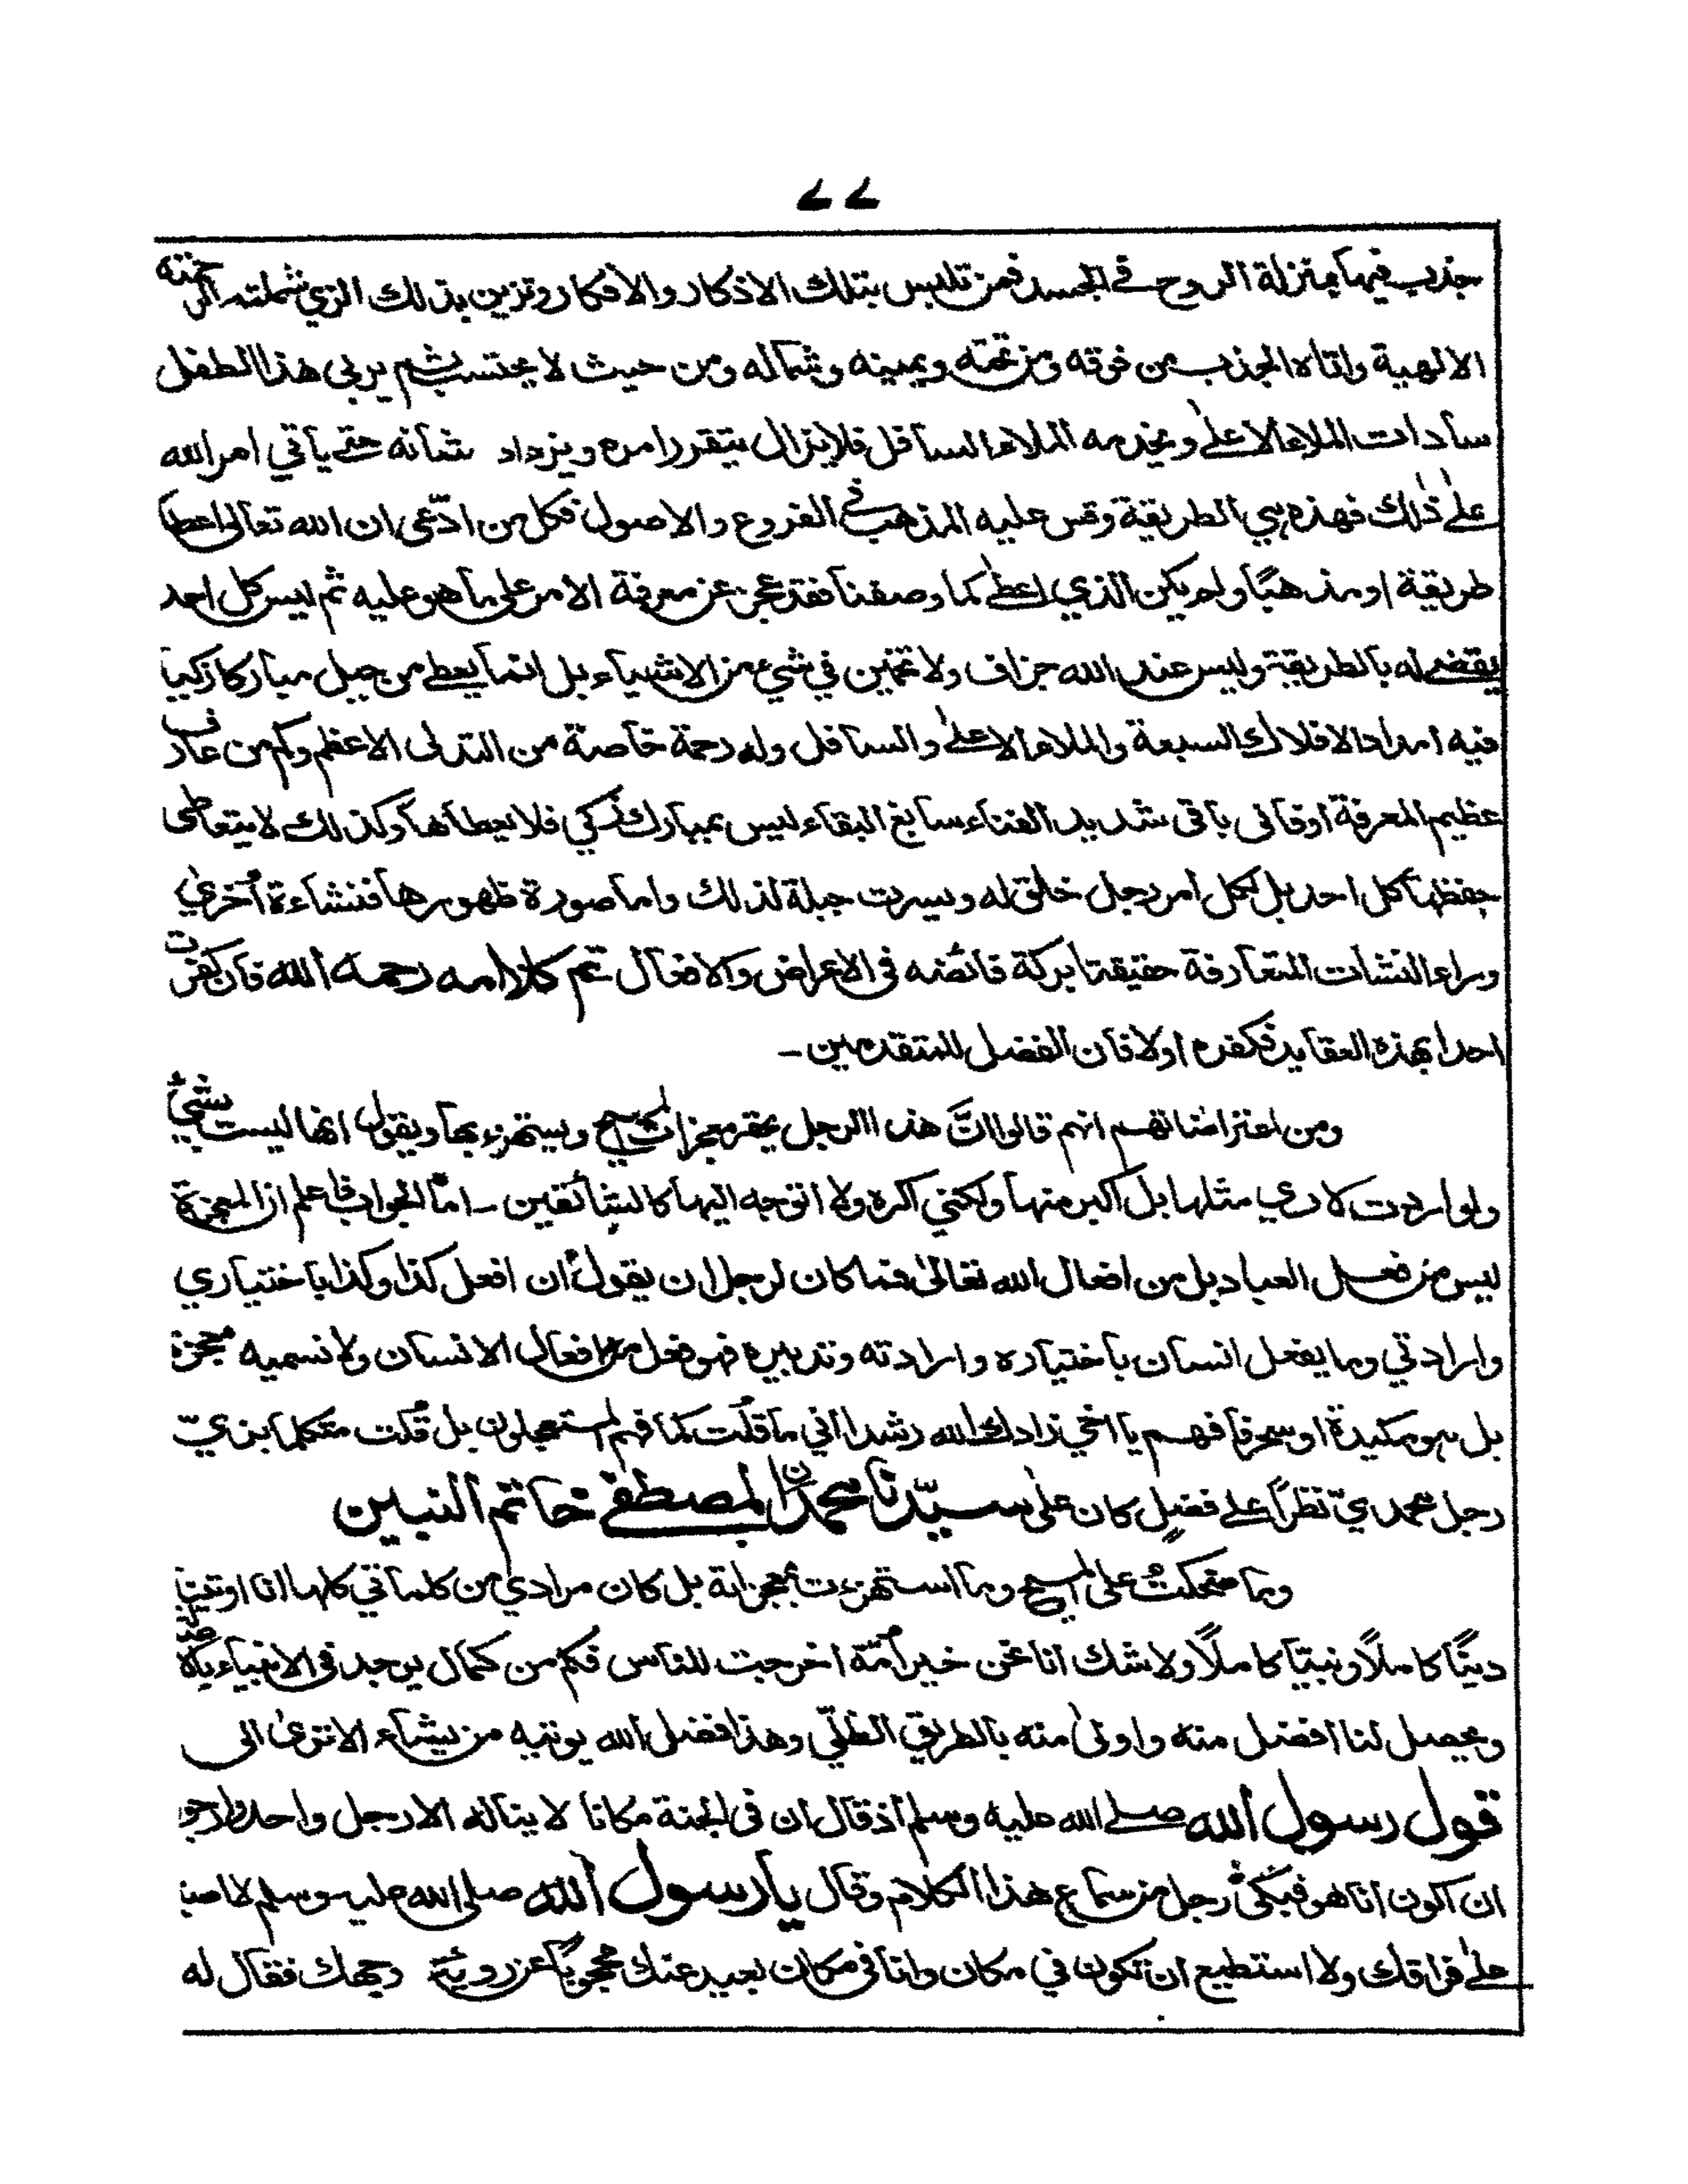 ٧٧
جذب فيها بمنزلة الروح في الجسد فمن تلبس بتلك الاذكار والافكار وتزين بذلك الزي شملته الرحمته
الالهية واتاه الجذب من فوقه ومن تحته ويمينه وشماله ومن حيث لا يحتسب ثم يربى هذا الطفل
سادات الملاء الاعلى ويخدمه الملاء السافل فلا يزال يتقرر امره ويزداد شانه حتى ياتي امر الله
على ذلك فهذه هي الطريقة وقس عليه المذهب في الفروع والاصول فكل من ادّعى ان الله تعالى اعطا
طريقة او مذهبًا ولم يكن الذي اعطى كما وصفنا فقد عجز عن معرفة الامر على ما هو عليه ثم ليس كل احد
يقضى له بالطريقة وليس عند الله جزاف ولا تخمين في شيء من الاشياء بل انما يعطى من جبل مباركا زكيا
فيه امداد الافلاك السبعة والملاء الاعلى والسافل وله رحمة خاصة من التدلى الاعظم وكم من عارف
عظيم المعرفة اوفانى باقى شديد الفناء سابغ البقاء ليس بمبارك زكي فلا يعطاها وكذلك لا يتعاطى
حفظها كل احد بل لكل امر رجل خلق له ويسرت جبلة لذلك واما صورة ظهورها فنشاءة اُخرىٰ
وراء النشات المتعارفة حقيقتها بركة فائضه فى الاعراض والافعال تم كلامه رحمه الله فان كفرت
احدا بهذه العقايد فكفره اولا فان الفضل للمتقدمين -
ومن اعتراضاتهم انهم قالوا انَّ هذا الرجل يحقر معجزات المسيح ويستهزء بها ويقول انها ليست بشيءٍ
ولو اردت لارى مثلها بل اكبر منها ولكني اكره ولا اتوجه اليها كالشائقين - امّا الجواب فاعلم ان المعجزة
ليس من فعل العباد بل من افعال الله تعالىٰ فما كان لرجل ان يقول ان افعل كذا وكذا باختياري
وارادتي وما يفعل انسان باختياره وارادته وتدبيره فهو فعل من افعال الانسان ولا نسميه معجزة
بل هو مكيدة او سحر فافهم يا اخي زادك الله رشدا اني ما قلت كما فهم المستعجلون بل قُلت متكلما بزيّ
رجل محمديّ نظرًا على فضلٍ كان علىٰ سيّدنا محمدن المصطفى خاتم النبين
وما ضحكتُ على المسيح وما استهزءت بمعجزاته بل كان مرادي من كلماتي كلها انا اوتينا
دينًا كاملًا ونبيًّا كاملًا ولا شك انا نحن خير اُمّة اخرجت للناس فكم من كمال يوجد فى الانبياء بالاصالة
ويحصل لنا افضل منه واولىٰ منه بالطريق الظلّي وهذا فضل الله يوتيه من يشاء الا ترىٰ الى
قول رسول الله صلى الله عليه وسلم اذ قال ان فى الجنة مكانا لا يناله الا رجل واحد وارجو
ان اكون انا هو فبكىٰ رجل من سماع هذا الكلام وقال يا رسول الله صلى الله عليه وسلم لا اصبر
على فراقك ولا استطيع ان تكون في مكان وانا فى مكان بعيد عنك محجوبًا عن روئة وجهك فقال له